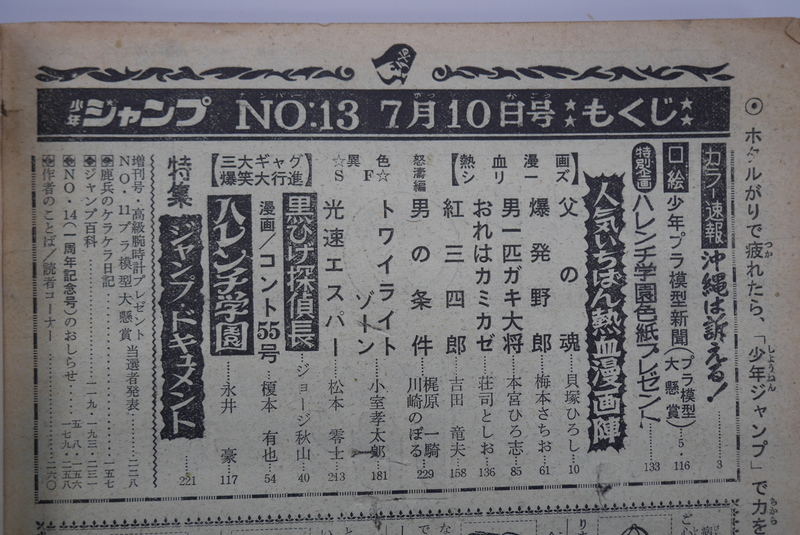 少年ジャンプ NO:13 7月10日号 もくじ
⦿ホタルがりで疲れたら、「少年ジャンプ」で力を
カラー速報 沖縄は訴える! 3
口絵 少年プラ模型新聞(プラ模型大懸賞) 5・116
特別企画 ハレンチ学園色紙プレゼント 133
人気いちばん熱血漫画陣
【熱血漫画シリーズ】
父の魂 貝塚ひろし 10
爆発野郎 梅本さちお 61
男一匹ガキ大将 本宮ひろ志 85
おれはカミカゼ 荘司としお 136
紅三四郎 吉田竜夫 158
怒濤編 男の条件 梶原一騎 川崎のぼる 229
☆異色SF☆
トワイライトゾーン 小室孝太郎 181
光速エスパー 松本零士 213
【三大ギャグ爆笑大行進】
黒ひげ探偵長 ジョージ秋山 40
漫画/コント55号 榎本有也 54
ハレンチ学園 永井豪 117
特集 ジャンプ・ドキュメント 221
増刊号 高級腕時計プレゼント
NO・11プラ模型大懸賞 当選者発表 二三八
◆鹿兵のケラケラ日記 一五七
◆ジャンプ百科 一一九・一九三・二三一
◆NO・14(一周年記念号)のおしらせ 五八・一五六 一七九・二五八
◆作者のことば/読者コーナー 二六〇